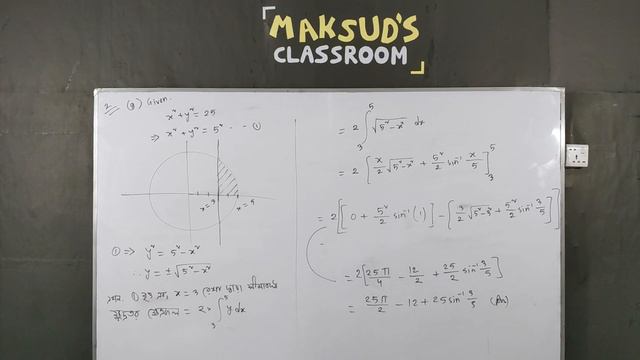 MAKSUD'S
CLASSROOM
2 (g) Given.
x² + y² = 25
⇒ x² + y² = 5² --- ①
x=3 x=5
① ⇒ y² = 5² - x²
∴ y = ± √5² - x²
① x = 3
ক্ষেত্রফল = 2 × ∫₃⁵ y dx
= 2 ∫₃⁵ √5² - x² dx
= 2 [x/2 √5² - x² + 5²/2 sin⁻¹ x/5]₃⁵
= 2 [[0 + 5²/2 sin⁻¹ (1)] - [3/2 √5² - 3² + 5²/2 sin⁻¹ 3/5]]
= 2 [25π/4 - 12/2 + 25/2 sin⁻¹ 3/5]
= 25π/2 - 12 + 25 sin⁻¹ 3/5 (An)